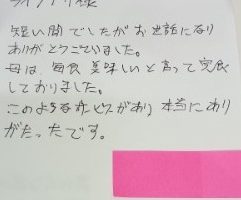 短い間でしたがお世話になり
ありがとうございました。
母は、毎食美味しいと言って完食
しておりました。
このようなサービスがあり本当にあり
がたったです。